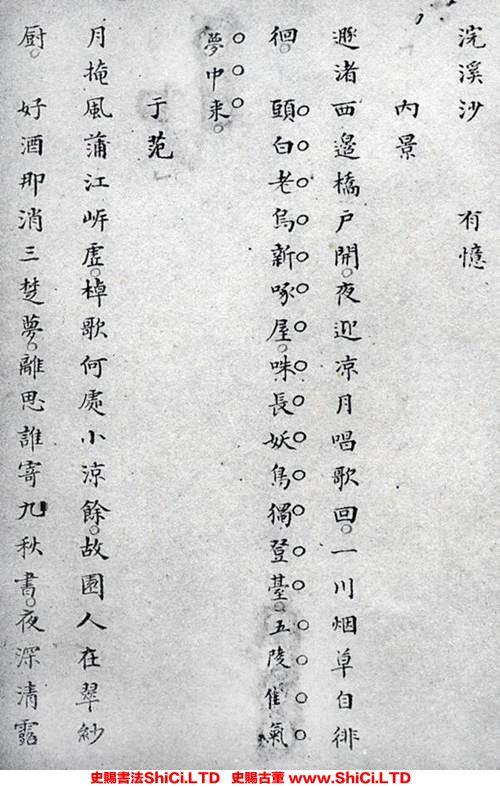 浣溪沙　有憶
內景
遯渚西邊橋戶開。夜迎凉月唱歌回。一川烟草自徘
徊。　頭白老烏新啄屋。咮長妖鳥獨登臺。五陵佳氣
夢中来。
于范
月掩風蒲江岸虛。棹歌何處小涼餘。故園人在翠紗
厨。　好酒那消三楚夢。離思誰寄九秋書。夜深清露
史賜書法ShiCi.LTD　史賜古董 www.ShiCi.LTD